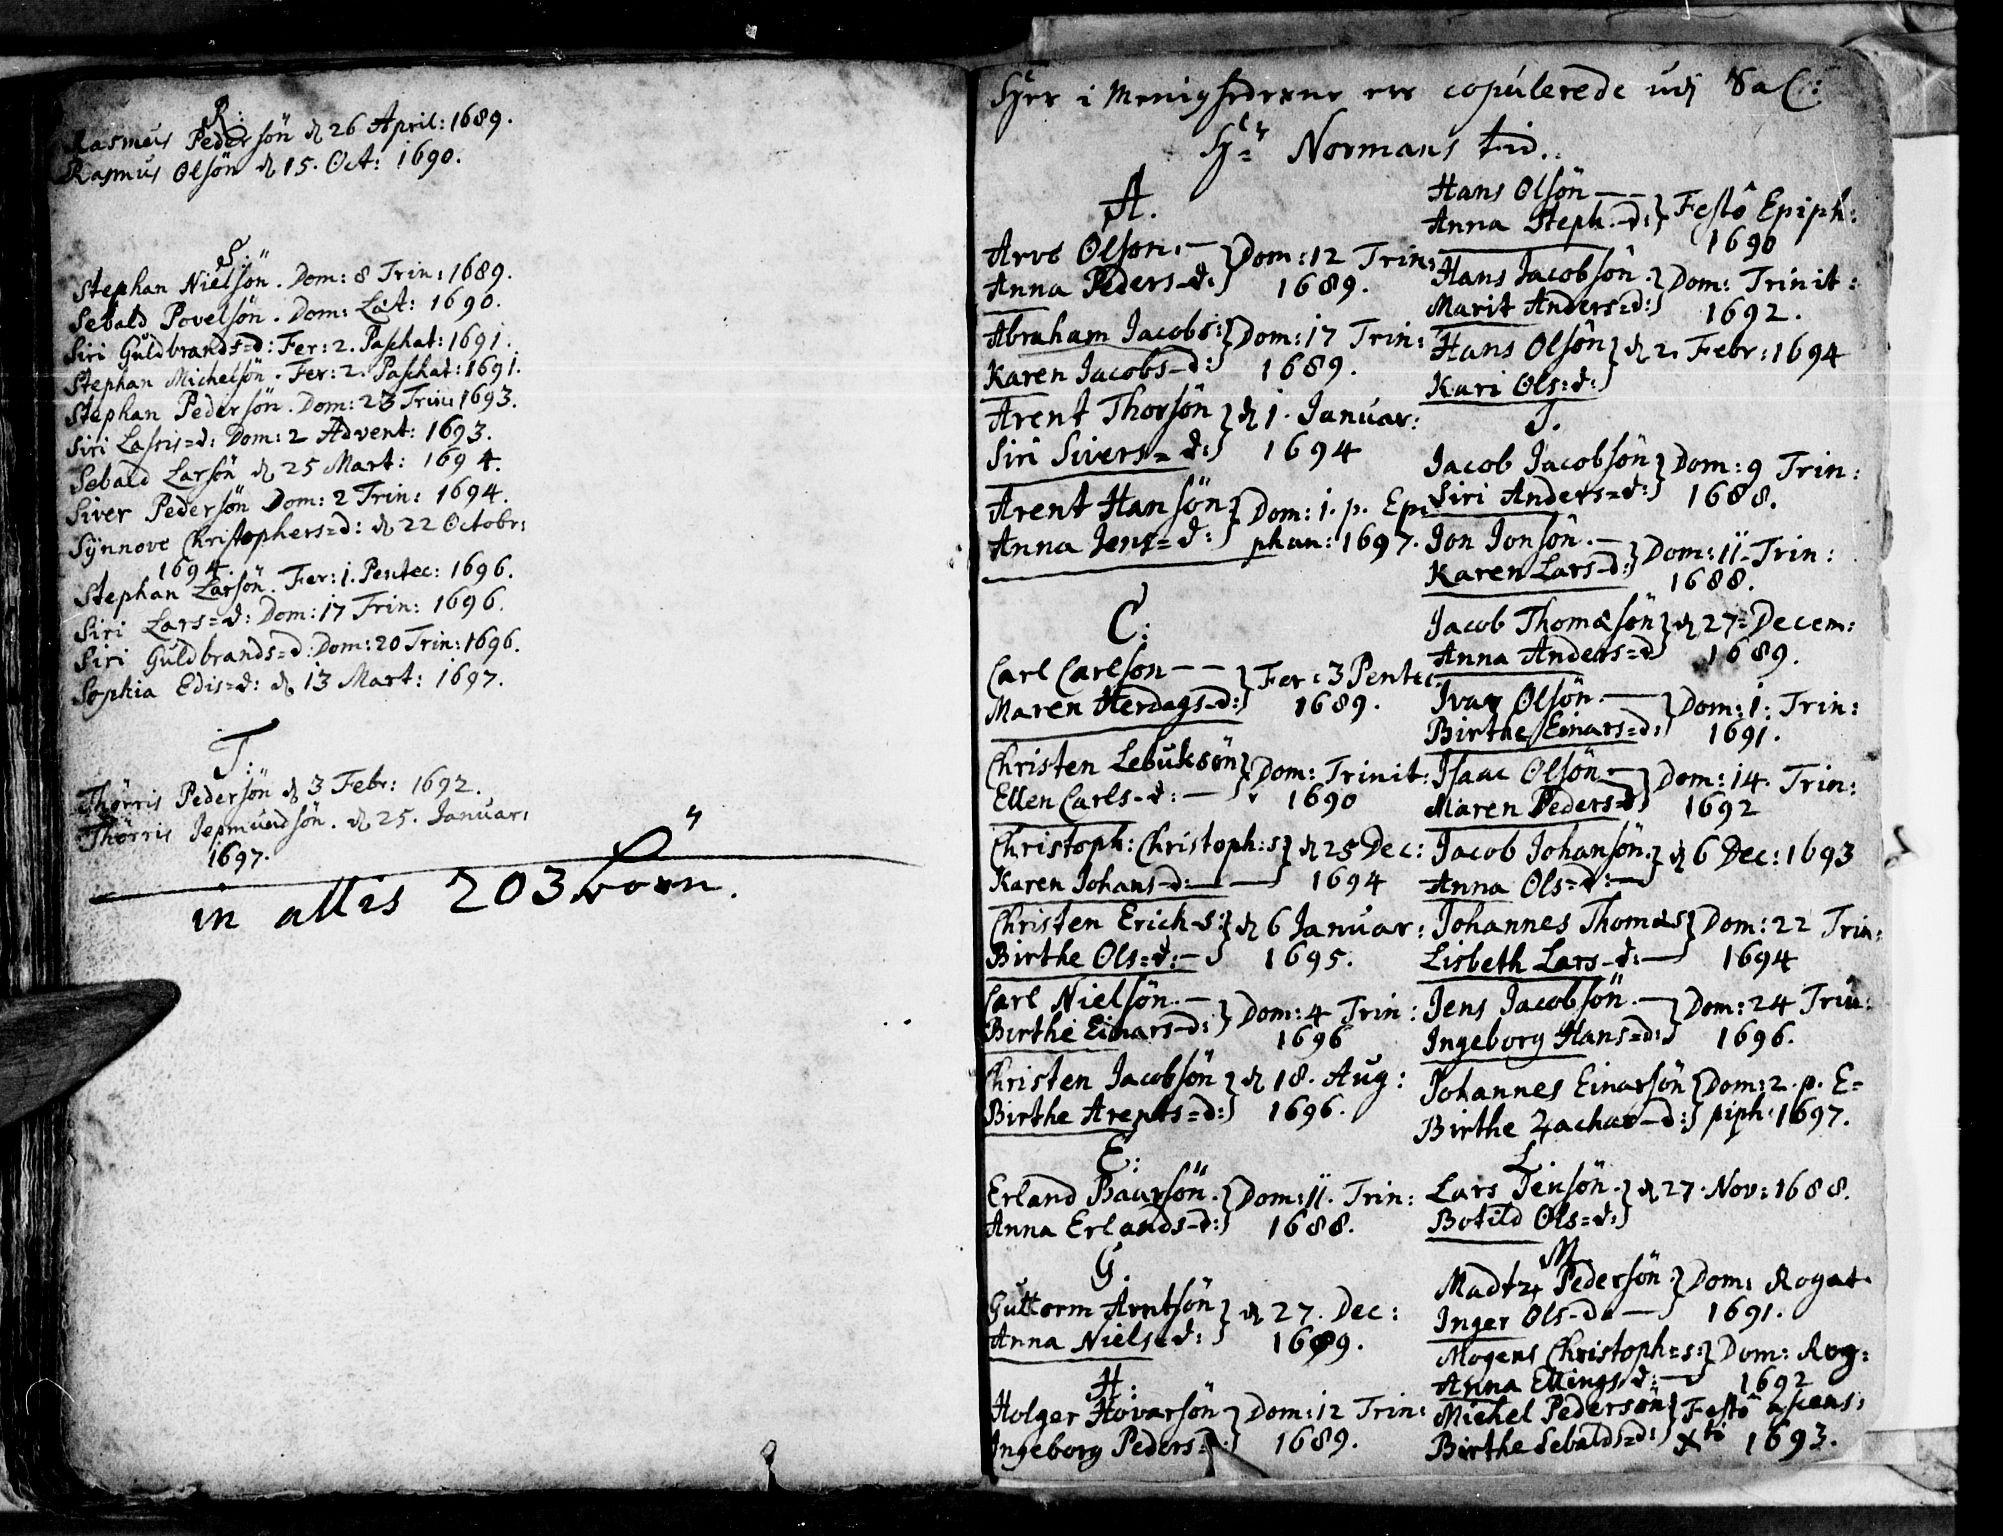 R:
Rasmus Pedersön d 26 April: 1689.
Rasmus Olsön d 15. Oct: 1690.
S:
Stephan Nielsön. Dom: 8 Trin: 1689.
Sebald Povelsön. Dom: Læt: 1690.
Siri Guldbrands=d: Fer: 2. Paschat: 1691.
Stephan Michelsön. Fer: 2. Paschat: 1691.
Stephan Pedersön. Dom: 23 Trin: 1693.
Siri Lassis=d: Dom: 2 Advent: 1693.
Sebald Larsön d 25 Mart: 1694.
Siver Pedersön Dom: 2 Trin: 1694.
Synnove Christophers=d: d 22 Octobr:
1694.
Stephan Larsön. Fer: 1. Pentec: 1696.
Siri Lars=d: Dom: 17 Trin: 1696.
Siri Guldbrands=d: Dom: 20 Trin: 1696.
Sophia Edis=d: d 13 Mart: 1697.
T:
Thörris Pedersön d 3 Febr: 1692.
Thörris Jepmundsön. d 25. Januar:
1697.
in alles 203 börn.
Her i Menighederne ere copulerede udj Sal:
Hr Normans tid.
A.
Arve Olson. — } Dom: 12 Trin:
Anna Peders-d: } 1689.
Abraham Jacobs: } Dom: 17 Trin:
Karen Jacobs-d: } 1689.
Arent Thorsön } d 1. Januar:
Siri Sivers=d: } 1694
Arent Hansön } Dom: 1. p. Epi-
Anna Jens=d: } phan: 1697.
C:
Carl Carlson — — } Fer: 3 Pentec
Maren Herdags-d: } 1689.
Christen Lebuksön } Dom: Trinit:
Ellen Carls-d: — } 1690
Christoph: Christoph: s } d 25 Dec:
Karen Johans-d: — — } 1694
Christen Erick-s: } d 6 Januar:
Birthe Ols=d: — } 1695.
Carl Nielsön. — } Dom: 4 Trin:
Birthe Einars-d: } 1696
Christen Jacobsön } d 18. Aug:
Birthe Arents=d: } 1696.
E:
Erland Baarsön. } Dom: 11. Trin:
Anna Erlands-d: } 1688.
G
Guttorm Arntsön } d 27. Dec:
Anna Niels=d: } 1689.
H:
Holger Hovarsön } Dom: 12 Trin:
Ingeborg Peders=d: } 1689.
Hans Olsön — — } Festo Epiph:
Anna Steph.-d: } 1690
Hans Jacobsön. } Dom: Trinit:
Marit Anders=d: } 1692.
Hans Olsön } d 2. Febr: 1694
Kari Ols=d: }
J.
Jacob Jacobsön } Dom: 9 Trin:
Siri Anders=d: } 1688.
Jon Jonsön. — } Dom: 11. Trin:
Karen Lars-d: } 1688.
Jacob Thomæsön } d 27= Decem:
Anna Anders=d } 1689.
Ivar Olsön. — } Dom: 1. Trin:
Birthe Einars=d: } 1691.
Isaac Olsön — } Dom: 14. Trin:
Maren Peders=d } 1692
Jacob Johansön. } d 6 Dec: 1693
Anna Ols=d: — }
Johannes Thomæs } Dom: 22 Trin:
Lisbeth Lars-d: — } 1694
Jens Jacobsön. — } Dom: 24 Trin:
Ingeborg Hans=d: } 1696.
Johannes Einarsön } Dom: 2. p. E=
Birthe Zachar-d: } piph: 1697.
L
Lars Jensön. } d 27. Nov: 1688.
Botild Ols=d: }
M
Madtz Pedersön. } Dom: Rogat.
Inger Ols-d: — } 1691.
Mogens Christoph=s: } Dom: Rog:
Anna Ellings-d: — } 1692
Michel Pedersön } Festo ascens:
Birthe Sebalds=d: } Xti 1693.